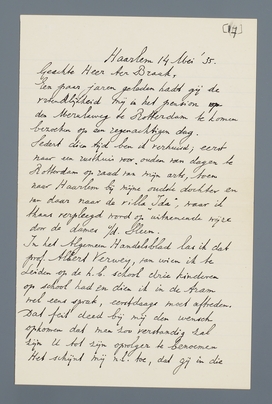 [17]
Haarlem 14 Mei '35.
Geachte Heer ter Braak,
Een paar jaren geleden hadt gij de
vriendlijkheid mij in het pension op
den Westzeeweg te Rotterdam te komen
bezoeken op een regenachtigen dag.
Sedert dien tijd ben ik verhuisd, eerst
naar een rusthuis voor ouden van dagen te
Rotterdam op raad van mijn arts, toen
naar Haarlem bij mijne oudste dochter en
van daar naar de villa "Ida", waar ik
thans verpleegd word op uitnemende wijze
door de dames
In het Algemeen Handelsblad las ik dat
prof. Albert Verwey, van wien ik te
Leiden op de h.b. school drie kinderen
op school had en dien ik in de tram
wel eens sprak, eerstdaags moet aftreden.
Dat feit deed bij mij den wensch
opkomen dat men zoo verstandig zal
zijn U tot zijn opvolger te benoemen
Het schijnt mij n.l. toe, dat gij in die